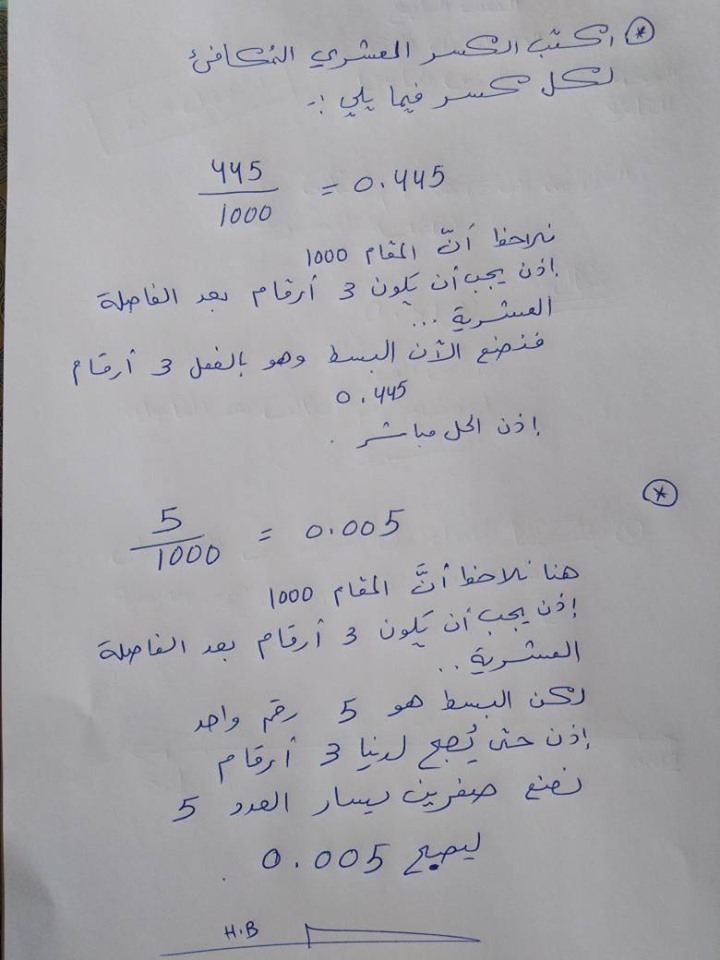 * اكتب الكسر العشري المكافئ
لكل كسر فيما يلي :-
445/1000 = 0.445
نلاحظ أنّ المقام 1000
إذن يجب أن يكون 3 أرقام بعد الفاصلة
العشرية ...
فنضع الآن البسط وهو بالفعل 3 أرقام
0.445
إذن الحل مباشر .
*
5/1000 = 0.005
هنا نلاحظ أنَّ المقام 1000
إذن يجب أن يكون 3 أرقام بعد الفاصلة
العشرية ..
لكن البسط هو 5 رقم واحد
إذن حتى يُصبح لدينا 3 أرقام
نضع صفرين يسار العدد 5
ليصبح 0.005
H.B